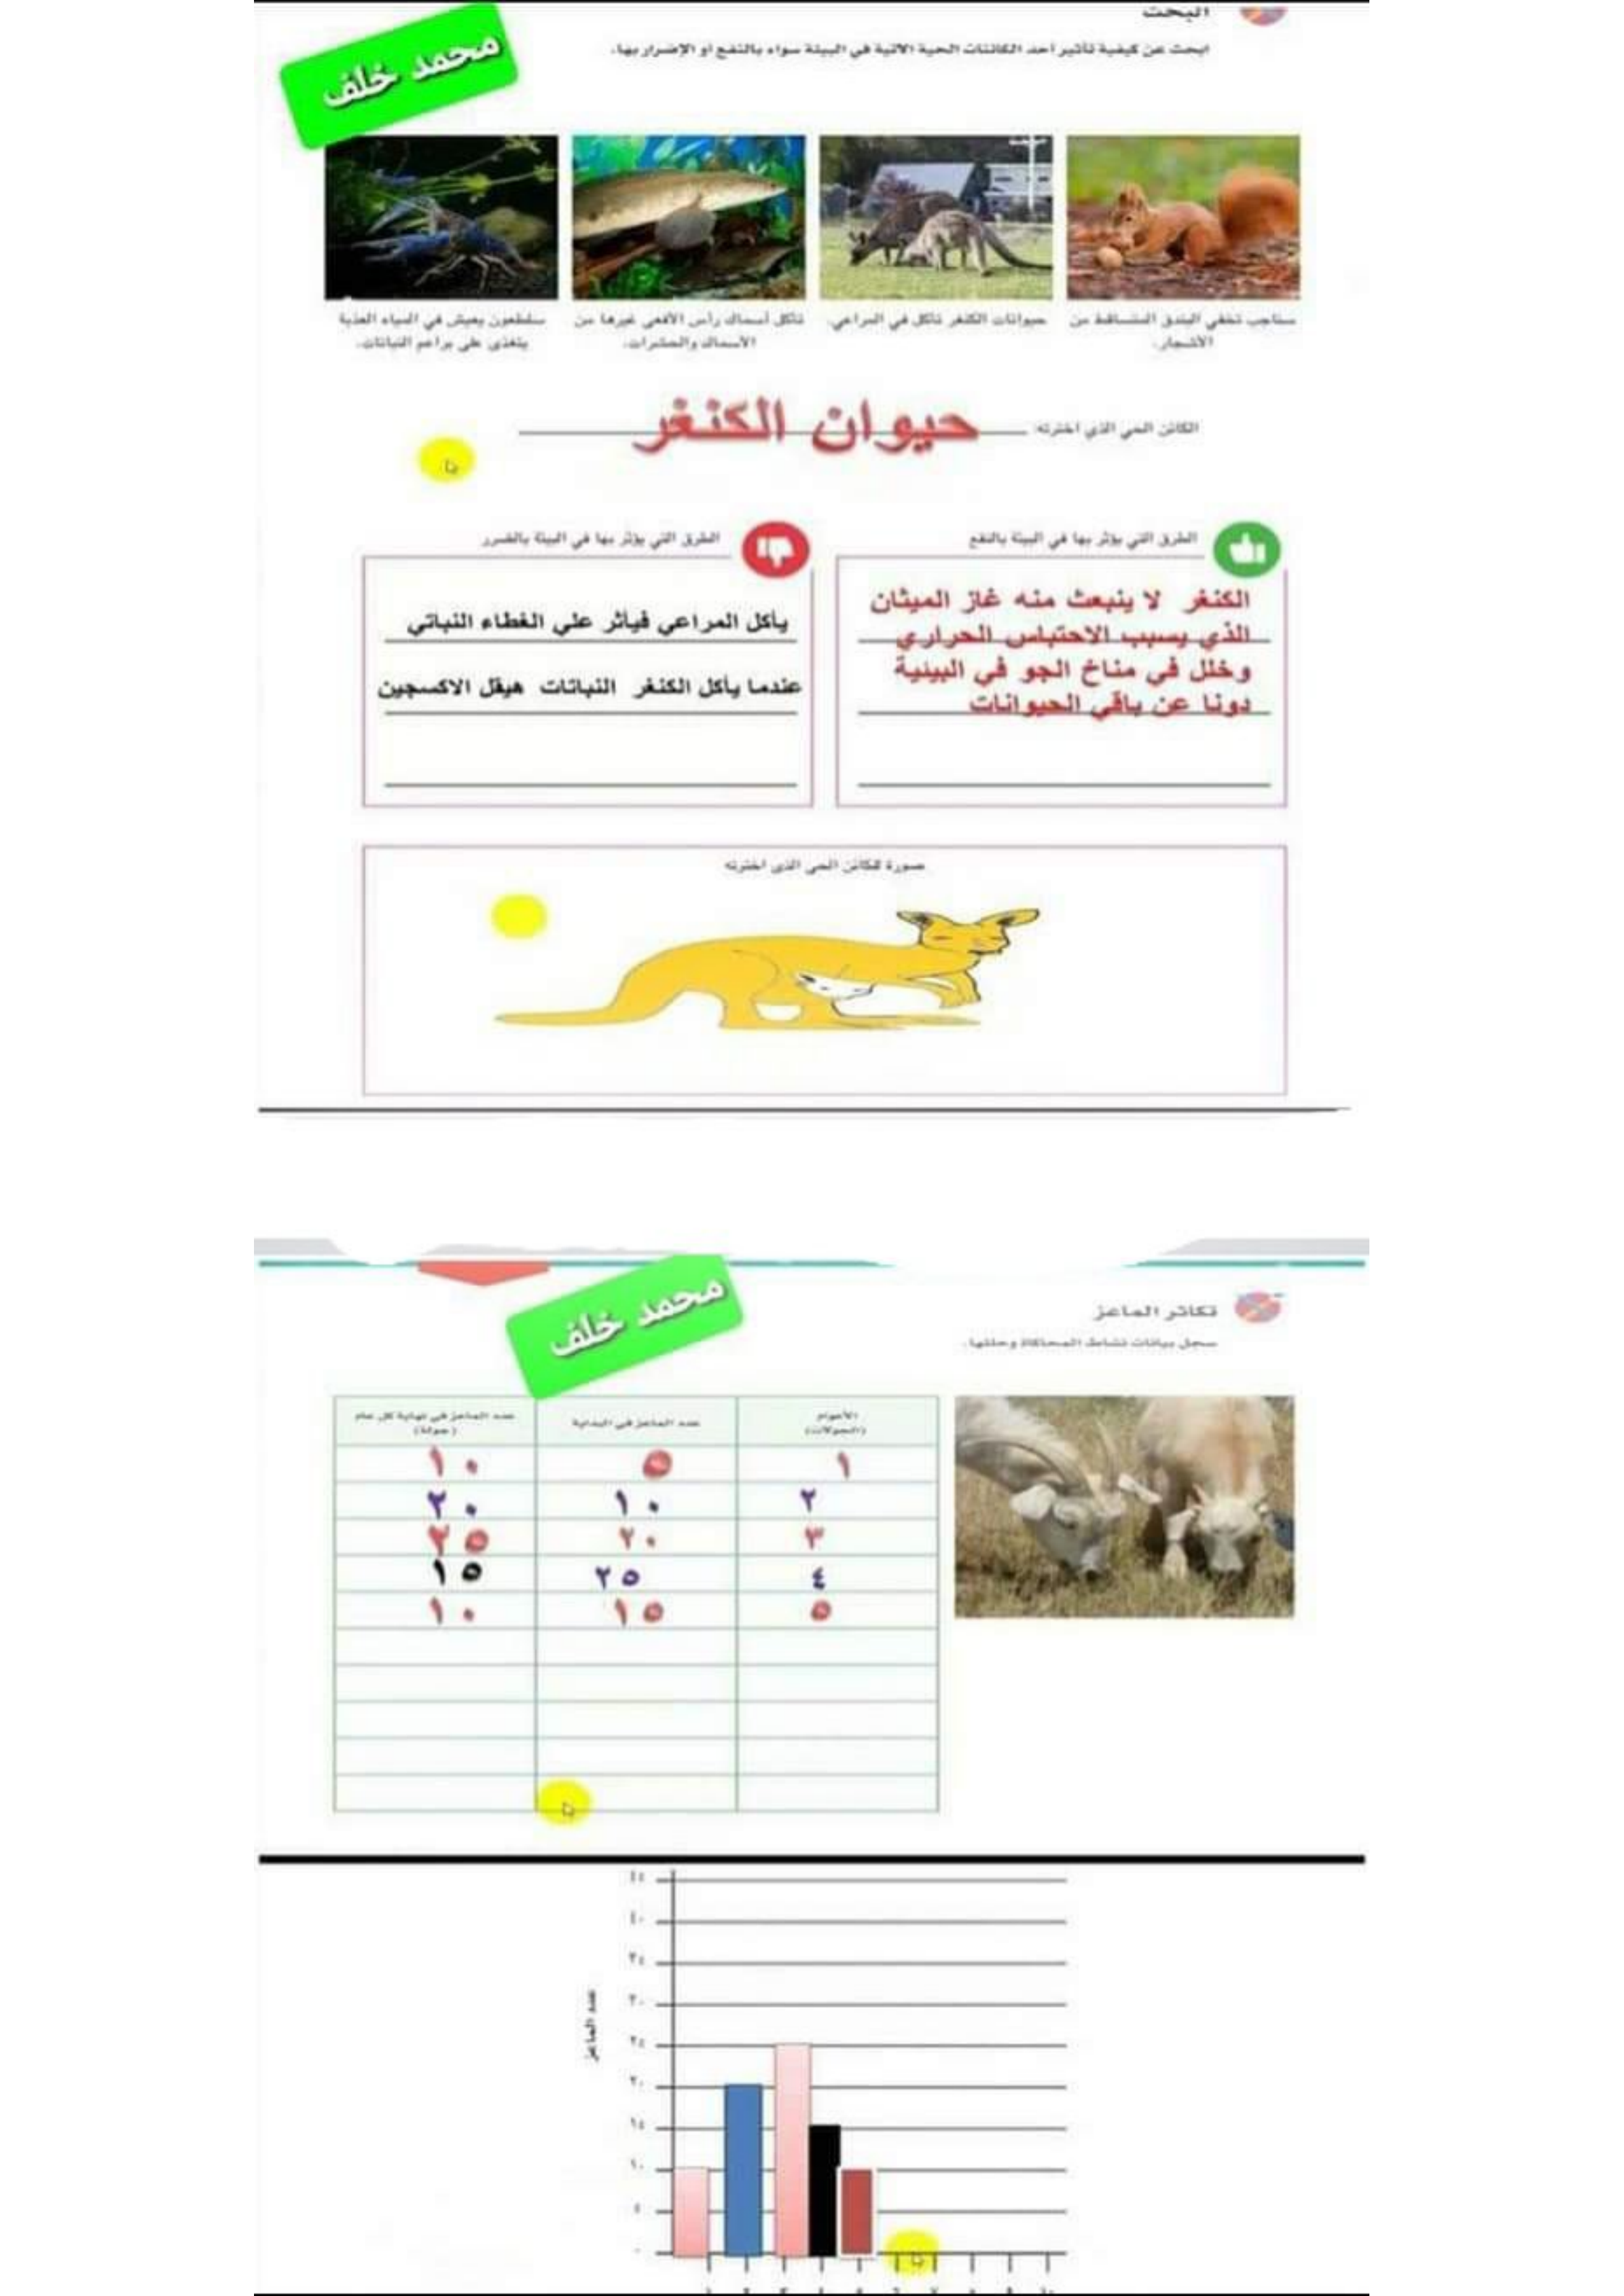 البحث
ابحث عن كيفية تأثير أحد الكائنات الحية الآتية في البيئة سواء بالنفع أو الإضرار بها.
محمد خلف
سناجب تخفي البندق المتساقط من
الأشجار.
حيوانات الكنغر تأكل في المراعي.
تأكل أسماك رأس الأفعى غيرها من
الأسماك والحشرات.
سلطعون يعيش في المياه العذبة
يتغذى على براعم النباتات.
الكائن الحي الذي اخترته:
حيوان الكنغر
الطرق التي يؤثر بها في البيئة بالنفع
الكنغر لا ينبعث منه غاز الميثان
الذي يسبب الاحتباس الحراري
وخلل في مناخ الجو في البيئية
دونا عن باقي الحيوانات
الطرق التي يؤثر بها في البيئة بالضرر
يأكل المراعي فيأثر علي الغطاء النباتي
عندما يأكل الكنغر النباتات هيقل الاكسجين
صورة للكائن الحي الذي اخترته
محمد خلف
تكاثر الماعز
سجل بيانات نشاط المحاكاة وحللها.
الأعوام (الجولات) عدد الماعز في البداية عدد الماعز في نهاية كل عام (جولة)
١ ٥ ١٠
٢ ١٠ ٢٠
٣ ٢٠ ٢٥
٤ ٢٥ ١٥
٥ ١٥ ١٠
عدد الماعز
٤٥
٤٠
٣٥
٣٠
٢٥
٢٠
١٥
١٠
٥
٠